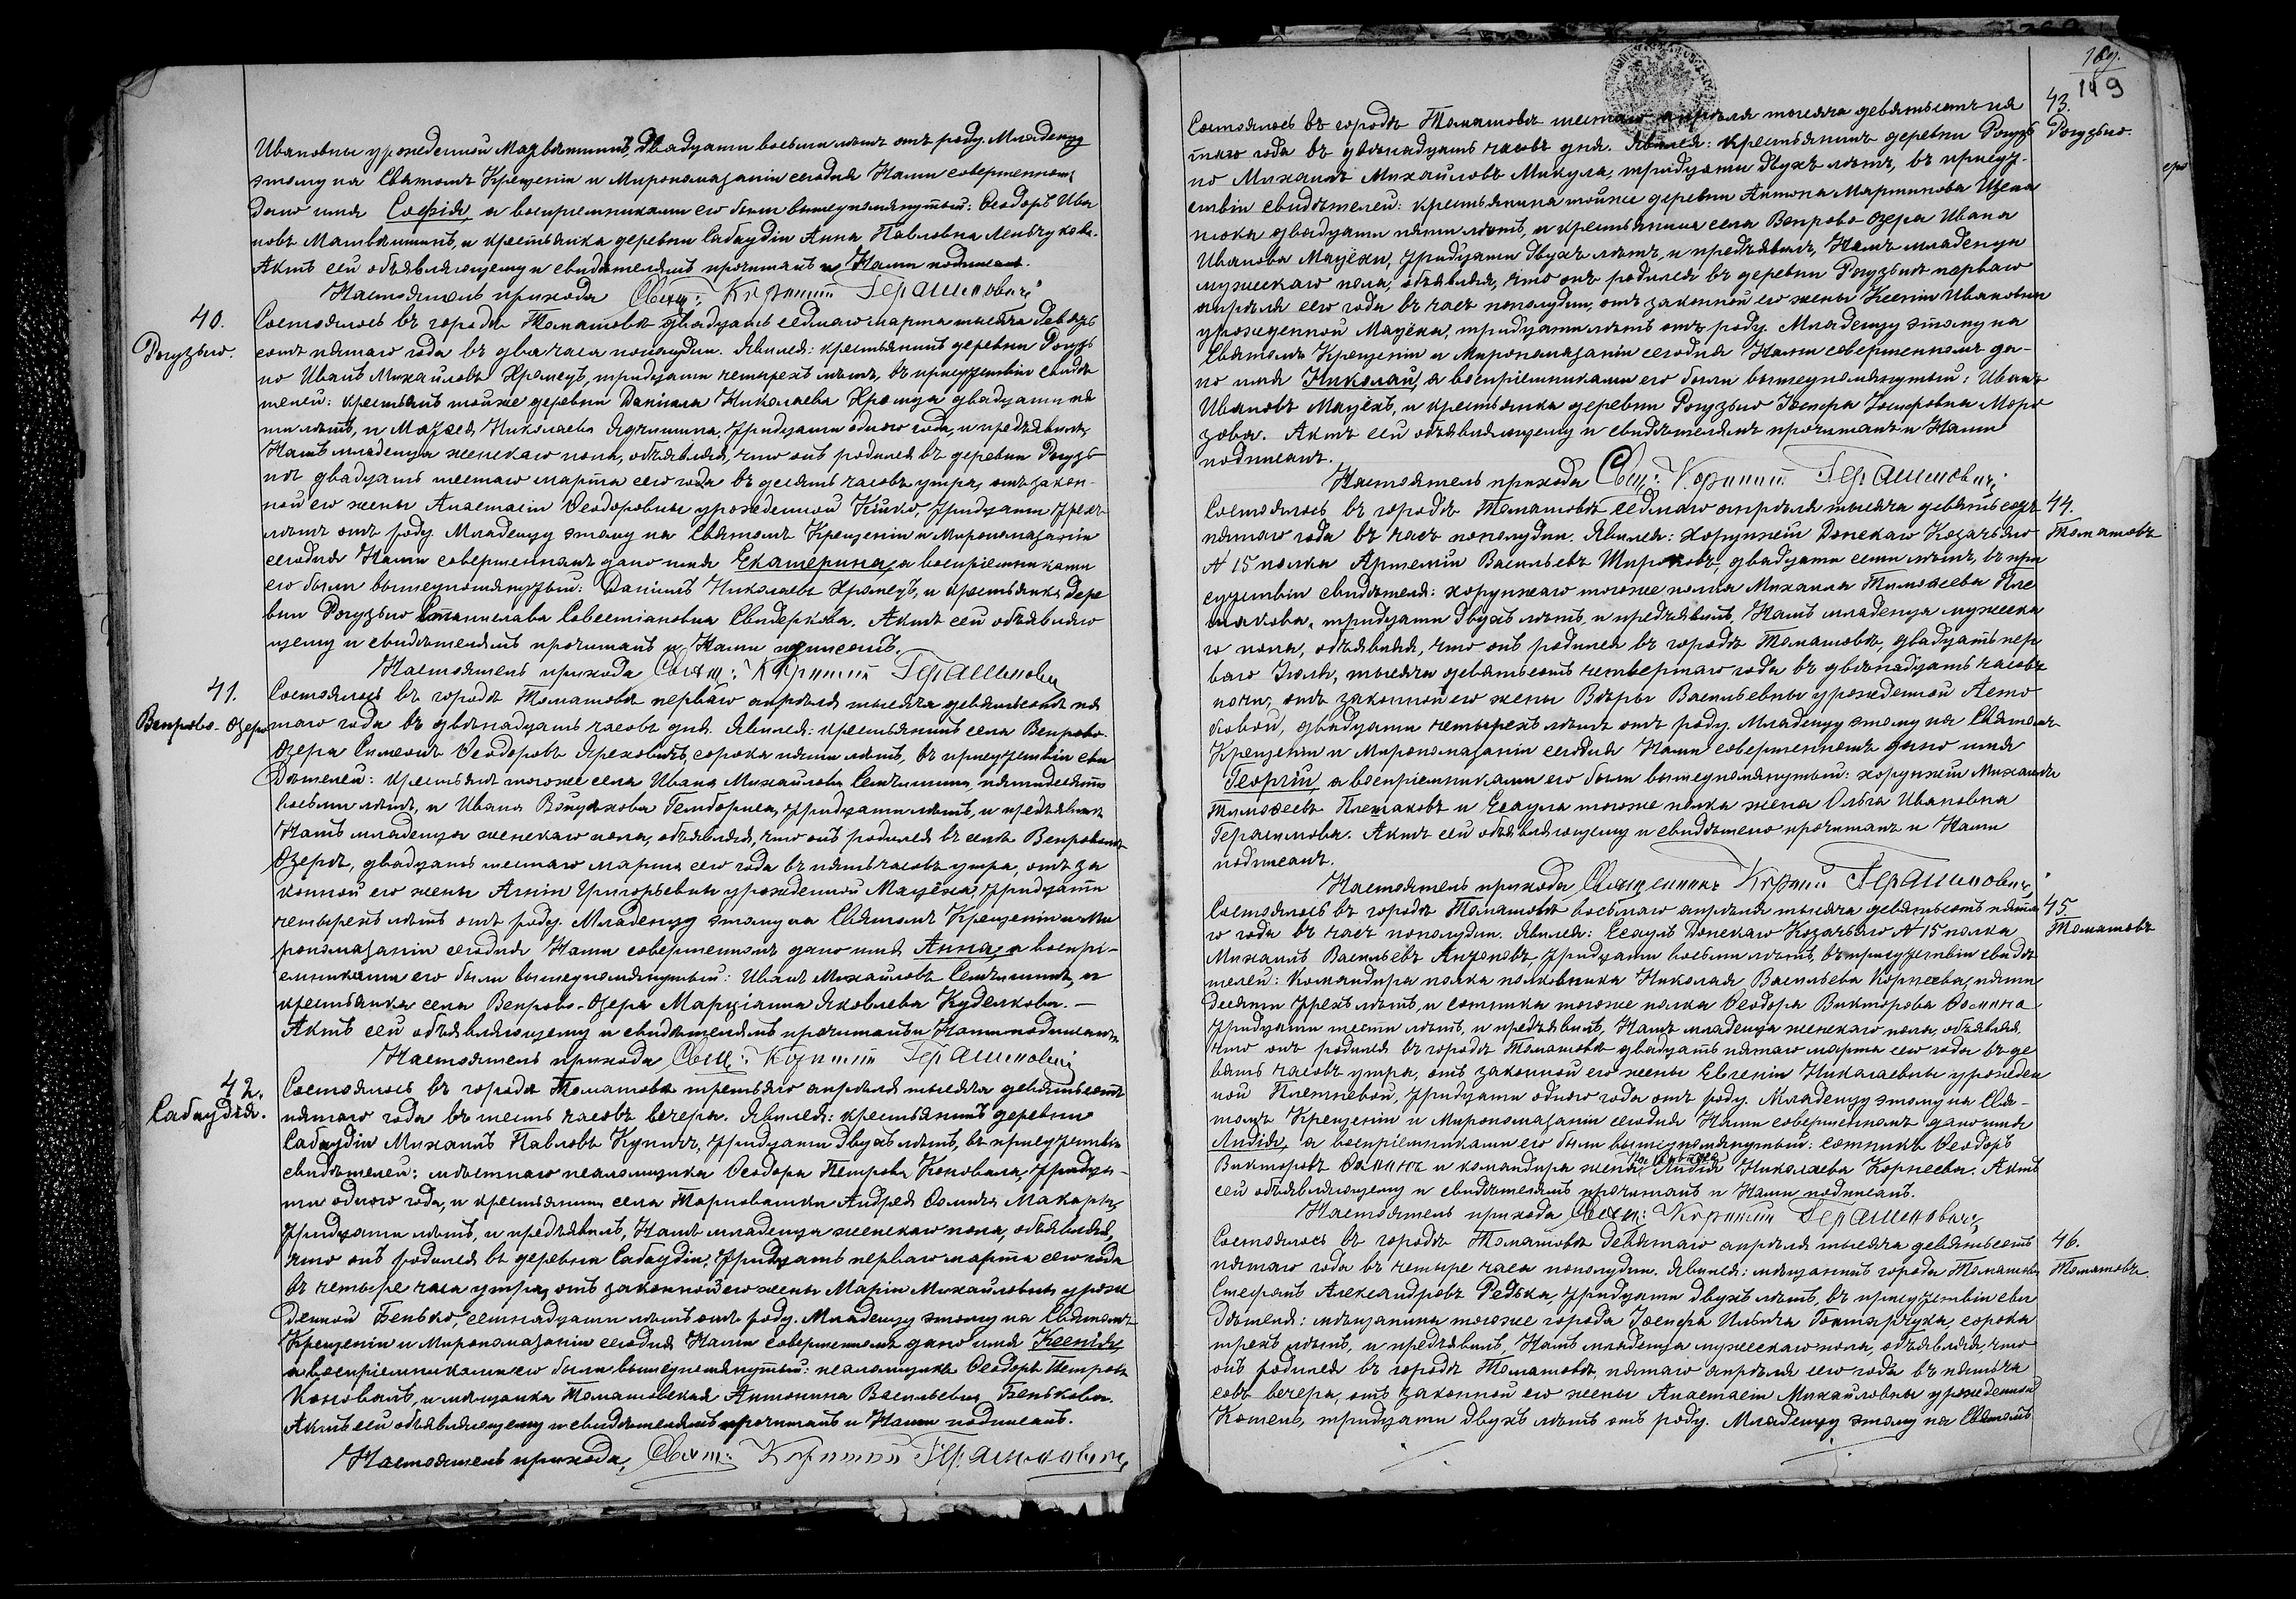 Ивановны урожденной Матвѣишинъ, двадцати восьми лѣтъ отъ роду. Младенцу
этому на Святомъ Крещеніи и Миропомазаніи сегодня Нами совершенномъ
дано имя Софія, а воспріемниками его были вышеупомянутый: Ѳеодоръ Ива
новъ Матвѣишинъ, и крестьянка деревни Сабаудіи Анна Павловна Левчукова.
Актъ сей объявляющему и свидѣтелямъ прочитанъ и Нами подписанъ.
Настоятель прихода Свящ: Корнилій Герасимовичъ
40.
Рогузьно.
Состоялось въ городѣ Томашовѣ двадцать седмаго марта тысяча девять
сотъ пятаго года въ два часа пополудни. Явился: крестьянинъ деревни Рогузь
но Иванъ Михайловъ Хромецъ, тридцати четырехъ лѣтъ, въ присутствіи свидѣ
телей: крестьянъ тойже деревни Даніила Николаева Хромца двадцати пя
ти лѣтъ, и Моѵсея Николаева Ядчишина, тридцати одного года, и предъявилъ
Намъ младенца женскаго пола, объявляя, что онъ родился въ деревни Рогузь
нѣ двадцать шестаго марта сего года въ десять часовъ утра, отъ закон-
ной его жены Анастасіи Ѳеодоровны урожденной Кицко, тридцати трехъ
лѣтъ отъ роду. Младенцу этому на Святомъ Крещеніи и Миропомазаніи
сегодня Нами совершенномъ дано имя Екатерина, а воспріемниками
его были вышеупомянутый: Даніилъ Николаевъ Хромецъ, и крестьянка дере
вни Рогузьно Станислава Совестіановна Свидеркова. Актъ сей объявляю
щему и свидѣтелямъ прочитанъ и Нами подписанъ.
Настоятель прихода Свящ: Корнилій Герасимовичъ
41.
Венрово-Озеро
Состоялось въ городѣ Томашовѣ перваго апрѣля тысяча девятьсотъ пя
таго года въ двѣнадцать часовъ дня. Явился: крестьянинъ села Венрово-
Озера Симеонъ Ѳеодоровъ Яреховичъ, сорока пяти лѣтъ, въ присутствіи сви
дѣтелей: крестьянъ тогоже села Ивана Михайлова Сенчишина, пятидесяти
восьми лѣтъ, и Ивана Войцехова Гембориса, тридцати лѣтъ, и предъявилъ
Намъ младенца женскаго пола, объявляя, что онъ родился въ селѣ Венровомъ
Озерѣ, двадцать шестаго марта сего года въ пять часовъ утра, отъ за
конной его жены Анны Григорьевны урожденной Мацѣха, тридцати
четырехъ лѣтъ отъ роду. Младенцу этому на Святомъ Крещеніи и Ми
ропомазаніи сегодня Нами совершенномъ дано имя Анна, а воспрі-
емниками его были вышеупомянутый: Иванъ Михайловъ Сенчишинъ, и
крестьянка села Венрово-Озера Марціанна Яковлева Куделкова. —
Актъ сей объявляющему и свидѣтелямъ прочитанъ и Нами подписанъ.
Настоятель прихода Свящ: Корнилій Герасимовичъ
42.
Сабаудія.
Состоялось въ городѣ Томашовѣ третьяго апрѣля тысяча девятьсотъ
пятаго года въ шесть часовъ вечера. Явился: крестьянинъ деревни
Сабаудіи Михаилъ Павловъ Купичъ, тридцати двухъ лѣтъ, въ присутствіи
свидѣтелей: мѣстнаго псаломщика Ѳеодора Петрова Коновала, тридца-
ти одного года, и крестьянина села Тарноватки Андрея Ѳомича Макары,
тридцати лѣтъ, и предъявилъ, Намъ младенца женскаго пола, объявляя,
что онъ родился въ деревни Сабаудіи, тридцать перваго марта сего года
въ четыре часа утра, отъ законной его жены Маріи Михайловны урож
денной Бенько, семнадцати лѣтъ отъ роду. Младенцу этому на Святомъ
Крещеніи и Миропомазаніи сегодня Нами совершенномъ дано имя Ксенія,
а воспріемниками его были вышеупомянутый: псаломщикъ Ѳеодоръ Петровъ
Коновалъ, и мѣщанка Томашовская Антонина Васильевна Бенькова.
Актъ сей объявляющему и свидѣтелямъ прочитанъ и Нами подписанъ.
Настоятель прихода, Свящ: Корнилій Герасимовичъ
169.
149
43.
Рогузьно.
Состоялось въ городѣ Томашовѣ шестаго апрѣля тысяча девятьсотъ пя
таго года въ двѣнадцать часовъ дня. Явился: крестьянинъ деревни Рогузь
но Михаилъ Михайловъ Микула, тридцати двухъ лѣтъ, въ присут-
ствіи свидѣтелей: крестьянина тойже деревни Антона Мартинова Щепа
нюка двадцати пяти лѣтъ, и крестьянина села Венрово-Озера Ивана
Иванова Мацѣхи, тридцати двухъ лѣтъ, и предъявилъ, Намъ младенца
мужескаго пола, объявляя, что онъ родился въ деревни Рогузьнѣ перваго
апрѣля сего года въ часъ пополудни, отъ законной его жены Ксеніи Ивановны
урожденной Мацѣха, тридцати лѣтъ отъ роду. Младенцу этому на
Святомъ Крещеніи и Миропомазаніи сегодня Нами совершенномъ да-
но имя Николай, а воспріемниками его были вышеупомянутый: Иванъ
Ивановъ Мацѣхъ, и крестьянка деревни Рогузьно Іосифа Іосифовна Моро
зова. Актъ сей объявляющему и свидѣтелямъ прочитанъ и Нами
подписанъ.
Настоятель прихода Свящ: Корнилій Герасимовичъ
44.
Томашовъ
Состоялось въ городѣ Томашовѣ седмаго апрѣля тысяча девятьсотъ
пятаго года въ часъ пополудни. Явился: Хорунжій Донскаго Козачьяго
№ 15 полка Артемій Васильевъ Широковъ, двадцати семи лѣтъ, въ при
сутствіи свидѣтеля: хорунжаго тогоже полка Михаила Тимоѳеева Пле
шакова, тридцати двухъ лѣтъ, и предъявилъ, Намъ младенца мужеска
го пола, объявляя, что онъ родился въ городѣ Томашовѣ, двадцать пер
ваго Іюля, тысяча девятьсотъ четвертаго года въ двѣнадцать часовъ
ночи, отъ законной его жены Вѣры Васильевны урожденной Асто
ховой, двадцати четырехъ лѣтъ отъ роду. Младенцу этому на Святомъ
Крещеніи и Миропомазаніи сегодня Нами совершенномъ дано имя
Георгій, а воспріемниками его были вышеупомянутый: хорунжій Михаилъ
Тимоѳеевъ Плешаковъ и Есаула тогоже полка жена Ольга Ивановна
Герасимова. Актъ сей объявляющему и свидѣтелю прочитанъ и Нами
подписанъ.
Настоятель прихода Священникъ Корнилій Герасимовичъ
45.
Томашовъ
Состоялось въ городѣ Томашовѣ восьмаго апрѣля тысяча девятьсотъ пята
го года въ часъ пополудни. Явился: Есаулъ Донскаго Козачьяго № 15 полка
Михаилъ Васильевъ Антоновъ, тридцати восьми лѣтъ, въ присутствіи свидѣ
телей: Командира полка полковника Николая Васильева Корнеева, пяти
десяти трехъ лѣтъ, и сотника тогоже полка Ѳеодора Викторова Ѳомина
тридцати шести лѣтъ, и предъявилъ, Намъ младенца женскаго пола, объявляя,
что онъ родился въ городѣ Томашовѣ двадцать пятаго марта сего года въ де
вять часовъ утра, отъ законной его жены Евгеніи Николаевны урожден
ной Плетневой, тридцати одного года отъ роду. Младенцу этому на Свя-
томъ Крещеніи и Миропомазаніи сегодня Нами совершенномъ дано имя
Лидія, а воспріемниками его были вышеупомянутый: сотникъ Ѳеодоръ
Викторовъ Ѳоминъ и командира жена Лидія Николаева Корнеева. Актъ
сей объявляющему и свидѣтелямъ прочитанъ и Нами подписанъ.
Настоятель прихода Свящ: Корнилій Герасимовичъ
46.
Томашовъ.
Состоялось въ городѣ Томашовѣ девятаго апрѣля тысяча девятьсотъ
пятаго года въ четыре часа пополудни. Явился: мѣщанинъ города Томашова
Стефанъ Александровъ Редька, тридцати двухъ лѣтъ, въ присутствіи сви
дѣтеля: мѣщанина тогоже города Іосифа Ильича Гонтарчука, сорока
трехъ лѣтъ, и предъявилъ, Намъ младенца мужескаго пола, объявляя, что
онъ родился въ городѣ Томашовѣ, пятаго апрѣля сего года въ пять ча
совъ вечера, отъ законной его жены Анастасіи Михайловны урожденной
Комень, тридцати двухъ лѣтъ отъ роду. Младенцу этому на Святомъ